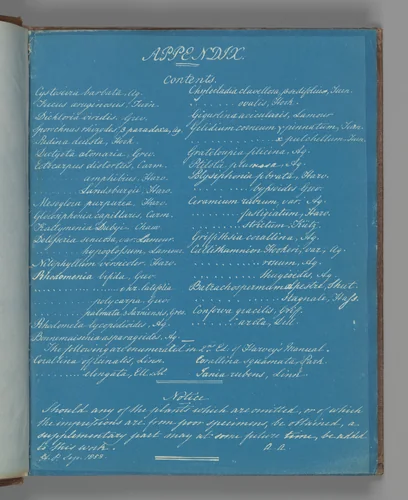 APPENDIX.
Contents.
Cystoseira barbata, Ag.
Fucus
Dichloria viridis, Grev.
Sporochnus rhizodes, β paradoxa, Ag.
Padina
Dictyota atomaria, Grev.
Ectocarpus distortus, Carm.
. . . . amphibius, Harv.
. . . . Landsburgii, Harv.
Mesogloia purpurea, Harv.
Gloiosiphonia capillaris, Carm.
Kallymenia Dubyi, Chauv
Delesseria sinuosa, var. Lamour.
. . . . hypoglossum, Lamour.
Nitophyllum versicolor, Harv.
Rhodomenia bifida, Grev.
. . . . var.
. . . . polycarpa, Grev.
. . . . palmata, β Grev.
Rhodomela lycopodioides, Ag.
Bonnemaisonia asparagoides, Ag.
Chylocladia clavellosa,
. . . . ovalis, Hook.
Gigartina acicularis, Lamour
Gelidium corneum γ pinnatum, Turn.
. . . . Turn.
Grateloupia filicina, Ag.
Ptilota plumosa, Ag.
Polysiphonia fibrata, Harv.
. . . . byssoides, Grev.
Ceramium rubrum, var. Ag.
. . . . fastigiatum, Harv.
. . . . strictum, Kutz.
Griffithsia corallina, Ag.
Callithamnion Hookeri, var. Ag.
. . . . roseum, Ag.
. . . . thuyoides, Ag.
Batrachospermum
. . . . stagnale, Hass.
Conferva gracilis, Griff.
. . . . arcta, Dill.
The following are enumerated in 2nd Ed. of Harvey's Manual.
Corallina officinalis, Linn.
. . . . elongata, Ell. &
Corallina squamata, Park
Jania rubens, Linn.
Notice
Should any of the plants which are omitted, or of which
the impressions are from poor specimens, be obtained, a
supplementary part may at some future time, be added
to this work.
A. A.
1853.